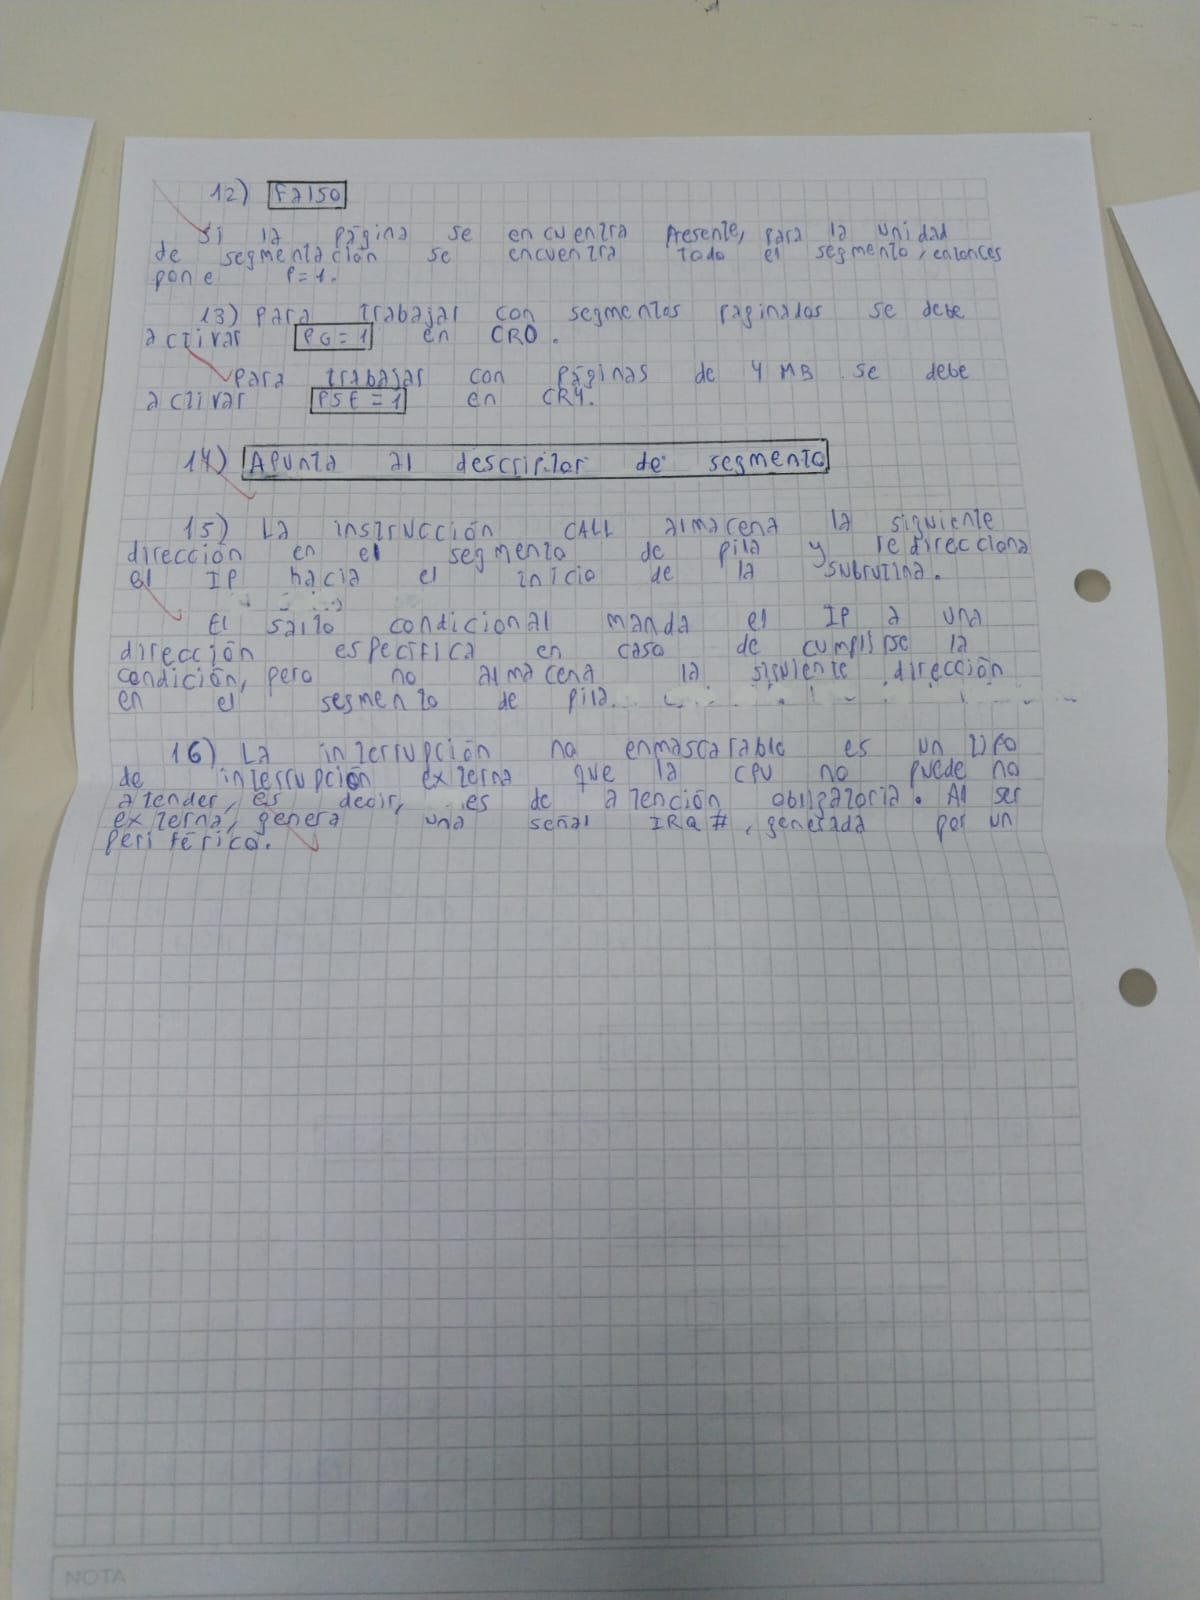 12) Falso
Si la página se encuentra presente, para la unidad
de segmentación se encuentra todo el segmento, entonces
pone P=1.
13) Para trabajar con segmentos paginados se debe
activar PG=1 en CR0.
Para trabajar con páginas de 4 MB se debe
activar PSE=1 en CR4.
14) Apunta al descriptor de segmento
15) La instrucción CALL almacena la siguiente
dirección en el segmento de pila y redirecciona
el IP hacia el inicio de la subrutina.
El salto condicional manda el IP a una
dirección específica en caso de cumplirse la
condición, pero no almacena la siguiente dirección
en el segmento de pila.
16) La interrupción no enmascarable es un tipo
de interrupción externa que la CPU no puede no
atender, es decir, es de atención obligatoria. Al ser
externa, genera una señal IRQ#, generada por un
periférico.
NOTA